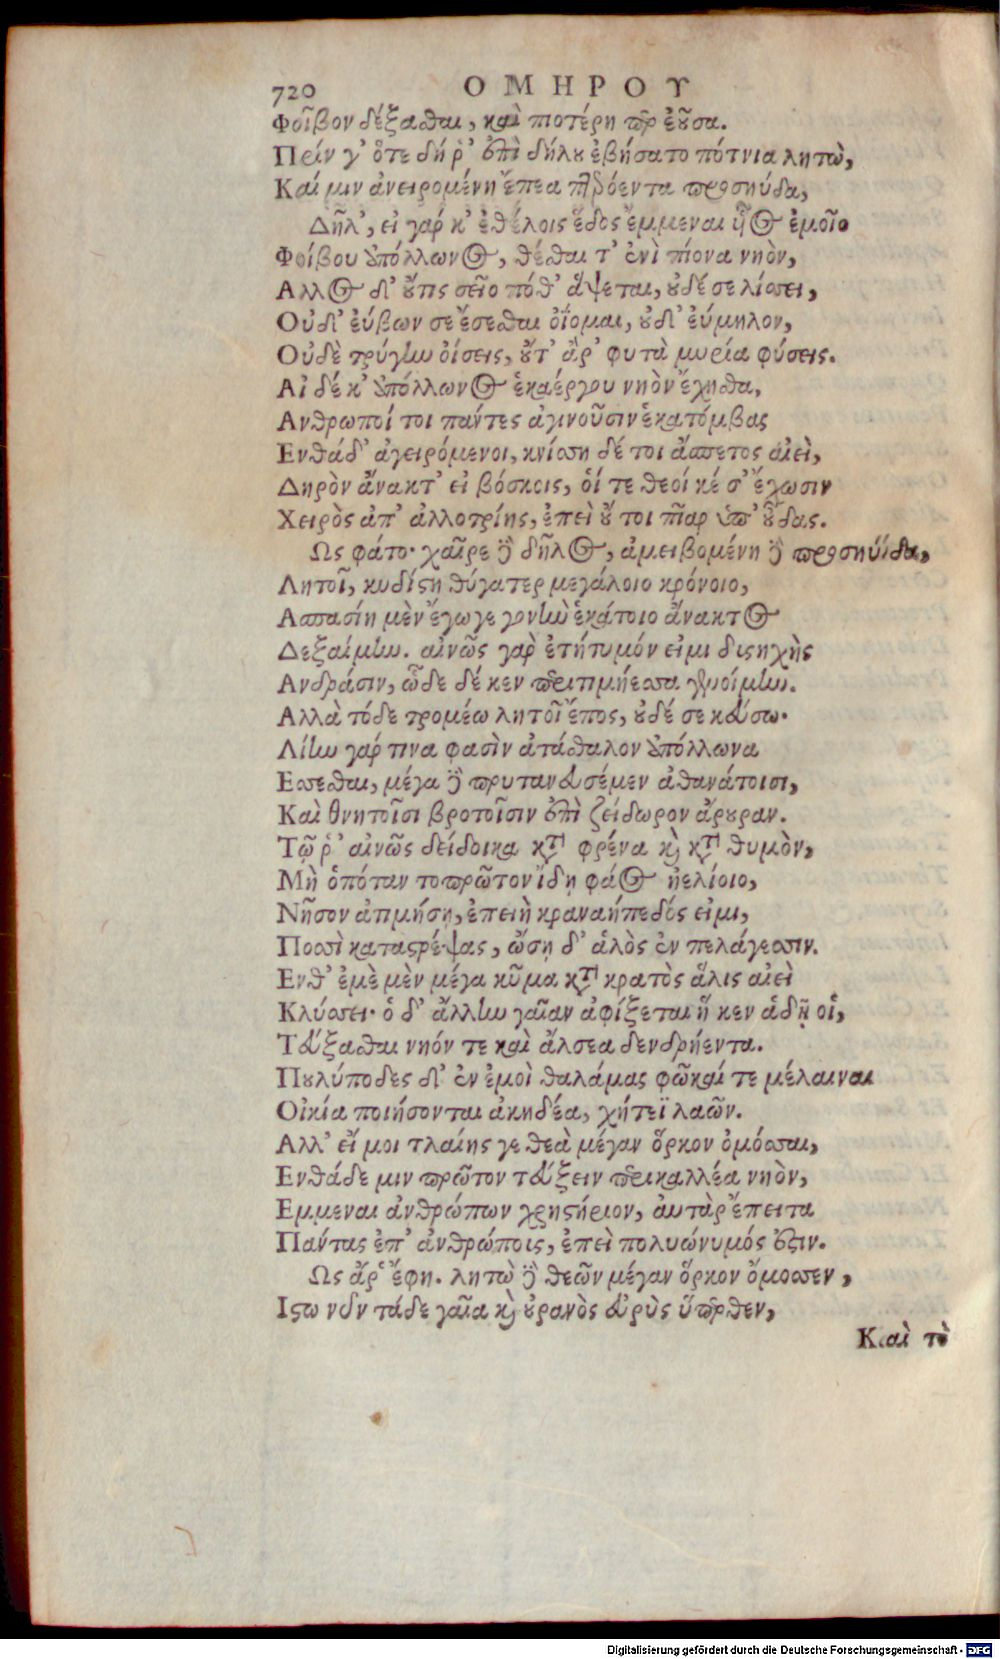 720 ΟΜΗΡΟΥ
Φοῖβον δέξασθαι, καὶ πιοτέρη περ ἐοῦσα.
Πρίν γ' ὅτε δή ῥ' ἐπὶ δήλου ἐβήσατο πότνια λητὼ,
Καί μιν ἀνειρομένη ἔπεα πτερόεντα προσηύδα,
Δῆλ', εἰ γάρ κ' ἐθέλοις ἕδος ἔμμεναι υἷος ἐμοῖο
Φοίβου ἀπόλλωνος, θέσθαι τ' ἐνὶ πίονα νηὸν,
Αλλος δ' οὔτις σεῖο πόθ' ἅψεται, οὐδέ σε λίσσει,
Οὐδ' εὔβων σε ἔσεσθαι ὀΐομαι, οὐδ' εὔμηλον,
Οὐδὲ τρύγην οἴσεις, οὔτ' ἂρ' φυτὰ μυρία φύσεις.
Αἰ δέ κ' ἀπόλλωνος ἑκαέργου νηὸν ἔχησθα,
Ανθρωποί τοι πάντες ἀγινοῦσιν ἑκατόμβας
Ενθάδ' ἀγειρόμενοι, κνίσση δέ τοι ἄσπετος αἰεὶ,
Δηρὸν ἄνακτ' εἰ βόσκοις, οἵ τε θεοί κέ σ' ἔχωσιν
Χειρὸς ἀπ' ἀλλοτρίης, ἐπεὶ οὔ τοι πῖαρ ὑπ' οὖδας.
Ως φάτο· χαῖρε δὲ δῆλος, ἀμειβομένη δὲ προσηύδα,
Λητοῖ, κυδίστη θύγατερ μεγάλοιο κρόνοιο,
Ασπασίη μὲν ἔγωγε γονὴν ἑκάτοιο ἄνακτος
Δεξαίμην. αἰνῶς γὰρ ἐτήτυμόν εἰμι δυσηχὴς
Ανδράσιν, ὧδε δέ κεν περιτιμήεσσα γενοίμην.
Αλλὰ τόδε τρομέω λητοῖ ἔπος, οὐδέ σε κεύσω·
Λίην γάρ τινα φασὶν ἀτάσθαλον ἀπόλλωνα
Εσσεσθαι, μέγα δὲ πρυτανευσέμεν ἀθανάτοισι,
Καὶ θνητοῖσι βροτοῖσιν ἐπὶ ζείδωρον ἄρουραν.
Τῷ ῥ' αἰνῶς δείδοικα κατὰ φρένα καὶ κατὰ θυμὸν,
Μὴ ὁπόταν τοπρῶτον ἴδῃ φάος ἠελίοιο,
Νῆσον ἀτιμήσῃ, ἐπειὴ κραναήπεδός εἰμι,
Ποσσὶ καταστρέψας, ὤσῃ δ' ἁλὸς ἐν πελάγεσσιν.
Ενθ' ἐμὲ μὲν μέγα κῦμα κατὰ κρατὸς ἅλις αἰεὶ
Κλύσσει· ὁ δ' ἄλλην γαῖαν ἀφίξεται ἥ κεν ἅδῃ οἷ,
Τεύξασθαι νηόν τε καὶ ἄλσεα δενδρήεντα.
Πουλύποδες δ' ἐν ἐμοὶ θαλάμας φῶκαί τε μέλαιναι
Οἰκία ποιήσονται ἀκηδέα, χήτεϊ λαῶν.
Αλλ' εἴ μοι τλαίης γε θεὰ μέγαν ὅρκον ὀμόσσαι,
Ενθάδε μιν πρῶτον τεύξειν περικαλλέα νηὸν,
Εμμεναι ἀνθρώπων χρηστήριον, ἀυτὰρ ἔπειτα
Πάντας ἐπ' ἀνθρώποις, ἐπεὶ πολυώνυμός ἐστιν.
Ως ἄρ' ἔφη. λητὼ δὲ θεῶν μέγαν ὅρκον ὄμοσσεν,
Ιστω νῦν τάδε γαῖα καὶ οὐρανὸς εὐρὺς ὕπερθεν,
Καὶ τὸ
Digitalisierung gefördert durch die Deutsche Forschungsgemeinschaft - DFG